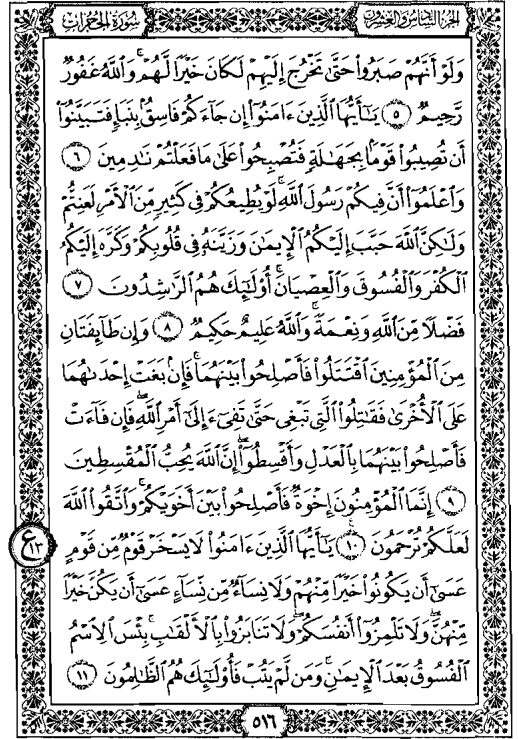 الجزء السادس والعشرون سورة الحجرات
وَلَوْ أَنَّهُمْ صَبَرُوا۟ حَتَّىٰ تَخْرُجَ إِلَيْهِمْ لَكَانَ خَيْرًا لَّهُمْ ۚ وَٱللَّهُ غَفُورٌ
رَّحِيمٌ ٥ يَـٰٓأَيُّهَا ٱلَّذِينَ ءَامَنُوٓا۟ إِن جَآءَكُمْ فَاسِقٌۢ بِنَبَإٍ فَتَبَيَّنُوٓا۟
أَن تُصِيبُوا۟ قَوْمًۢا بِجَهَـٰلَةٍ فَتُصْبِحُوا۟ عَلَىٰ مَا فَعَلْتُمْ نَـٰدِمِينَ ٦
وَٱعْلَمُوٓا۟ أَنَّ فِيكُمْ رَسُولَ ٱللَّهِ ۚ لَوْ يُطِيعُكُمْ فِى كَثِيرٍ مِّنَ ٱلْأَمْرِ لَعَنِتُّمْ
وَلَـٰكِنَّ ٱللَّهَ حَبَّبَ إِلَيْكُمُ ٱلْإِيمَـٰنَ وَزَيَّنَهُۥ فِى قُلُوبِكُمْ وَكَرَّهَ إِلَيْكُمُ
ٱلْكُفْرَ وَٱلْفُسُوقَ وَٱلْعِصْيَانَ ۚ أُو۟لَـٰٓئِكَ هُمُ ٱلرَّٰشِدُونَ ٧
فَضْلًا مِّنَ ٱللَّهِ وَنِعْمَةً ۚ وَٱللَّهُ عَلِيمٌ حَكِيمٌ ٨ وَإِن طَآئِفَتَانِ
مِنَ ٱلْمُؤْمِنِينَ ٱقْتَتَلُوا۟ فَأَصْلِحُوا۟ بَيْنَهُمَا ۖ فَإِنۢ بَغَتْ إِحْدَىٰهُمَا
عَلَى ٱلْأُخْرَىٰ فَقَـٰتِلُوا۟ ٱلَّتِى تَبْغِى حَتَّىٰ تَفِىٓءَ إِلَىٰٓ أَمْرِ ٱللَّهِ ۚ فَإِن فَآءَتْ
فَأَصْلِحُوا۟ بَيْنَهُمَا بِٱلْعَدْلِ وَأَقْسِطُوٓا۟ ۖ إِنَّ ٱللَّهَ يُحِبُّ ٱلْمُقْسِطِينَ
٩ إِنَّمَا ٱلْمُؤْمِنُونَ إِخْوَةٌ فَأَصْلِحُوا۟ بَيْنَ أَخَوَيْكُمْ ۚ وَٱتَّقُوا۟ ٱللَّهَ
لَعَلَّكُمْ تُرْحَمُونَ ١٠ يَـٰٓأَيُّهَا ٱلَّذِينَ ءَامَنُوا۟ لَا يَسْخَرْ قَوْمٌ مِّن قَوْمٍ
ع ١٣
عَسَىٰٓ أَن يَكُونُوا۟ خَيْرًا مِّنْهُمْ وَلَا نِسَآءٌ مِّن نِّسَآءٍ عَسَىٰٓ أَن يَكُنَّ خَيْرًا
مِّنْهُنَّ ۖ وَلَا تَلْمِزُوٓا۟ أَنفُسَكُمْ وَلَا تَنَابَزُوا۟ بِٱلْأَلْقَـٰبِ ۖ بِئْسَ ٱلِٱسْمُ
ٱلْفُسُوقُ بَعْدَ ٱلْإِيمَـٰنِ ۚ وَمَن لَّمْ يَتُبْ فَأُو۟لَـٰٓئِكَ هُمُ ٱلظَّـٰلِمُونَ ١١
٥١٦